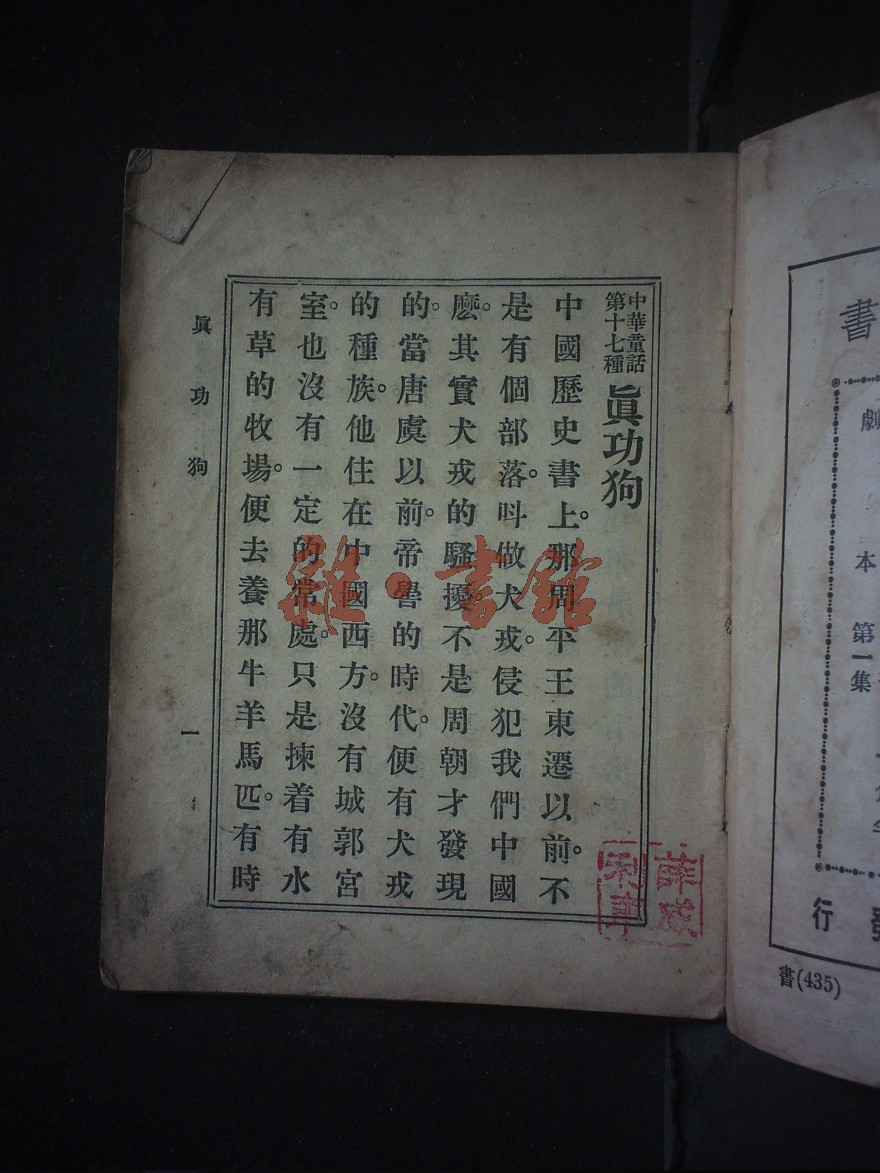 中華童話
第十七種
眞功狗
中國歷史書上。那周平王東遷以前。不
是有個部落。呌做犬戎。侵犯我們中國
麽。其實犬戎的騷擾。不是周朝才發現
的。當唐虞以前。帝嚳的時代。便有犬戎
的種族。他住在中國西方。沒有城郭宮
室。也沒有一定的常處。只是揀着有水
有草的牧場。便去養那牛羊馬匹。有時
眞功狗
一
雜·書館
書
劇
本
第一集
行
書(435)